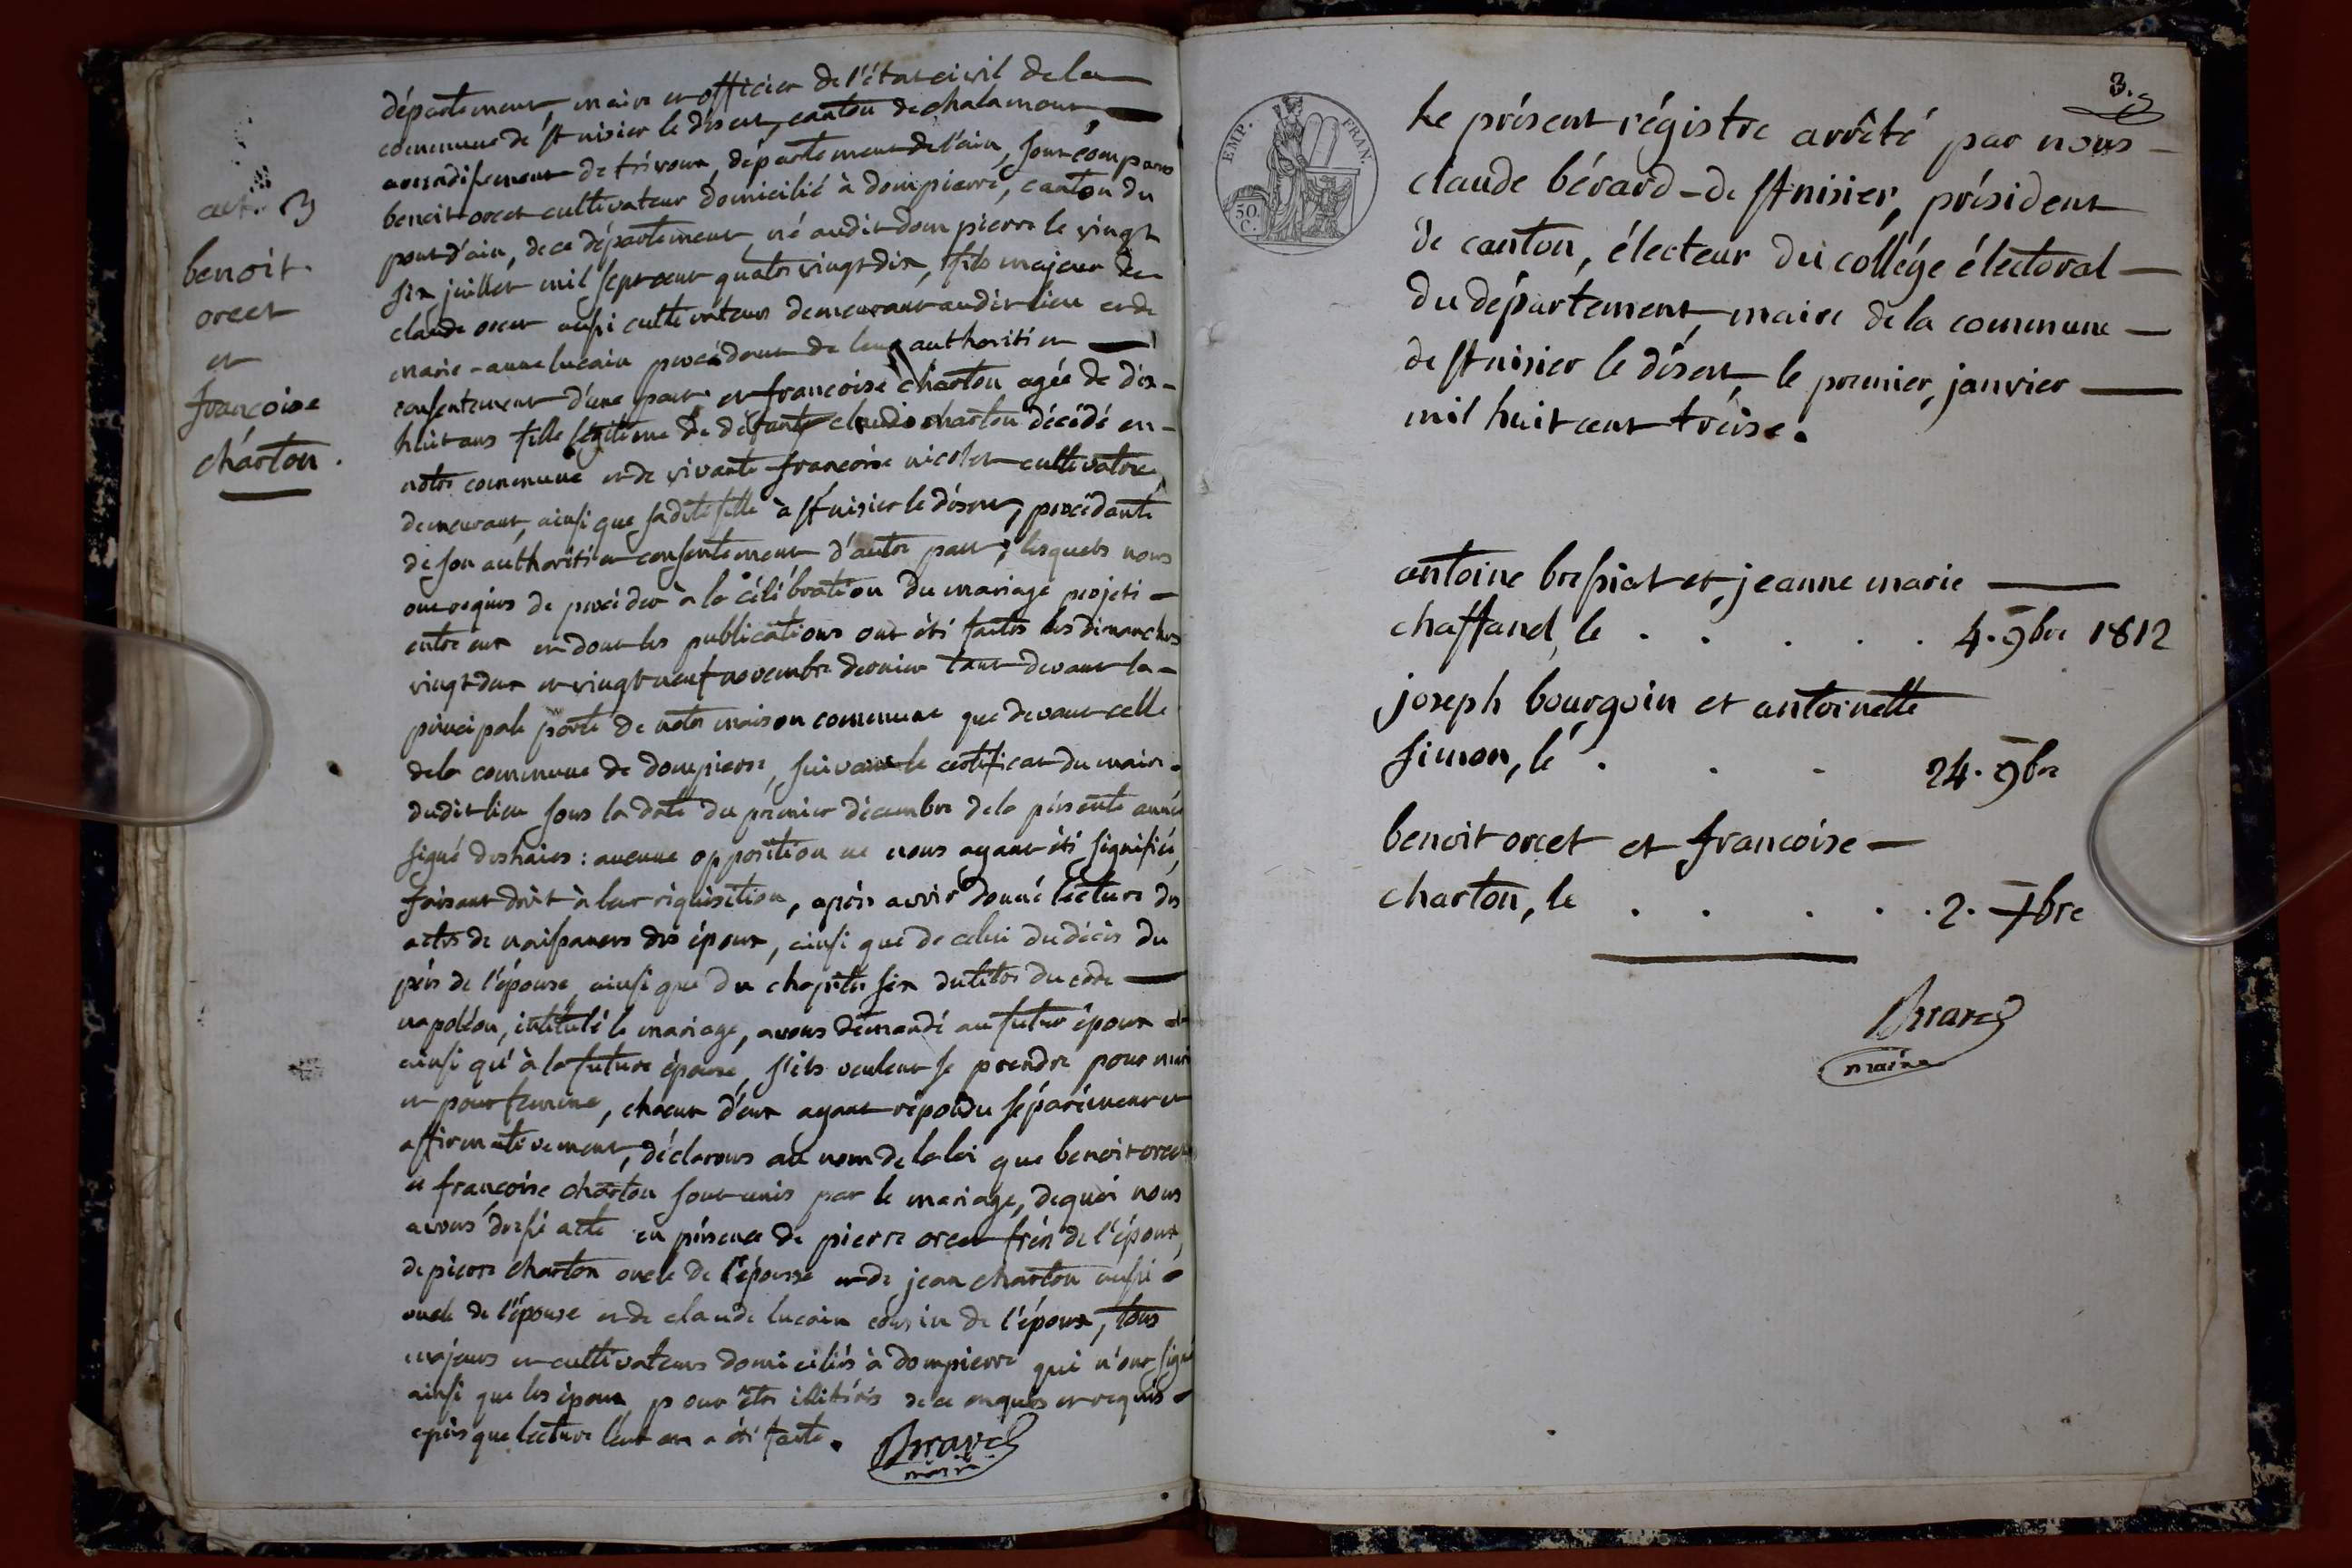 département, maire et officier de l'état civil de la
commune de st nisier le désert, canton de chalamont,
arrondissement de trévoux, département de l'ain, sont comparus
benoit orcet cultivateur domicilié à dompierre, canton du
pont d'ain, de ce département, né audit dompierre le vingt
six juillet mil sept cent quatre vingt dix, fils majeur de
claude orcet aussi cultivateur demeurant audit lieu et de
marie-anne lucain procédant de leur authorité et
consentement d'une part. et francoise charton agée de dix-
huit ans fille légitime de défunt claude charton décédé en-
notre commune et de vivante francoise nicolet cultivatrice,
demeurant, ainsi que sadite fille à st nisier le désert, procédante
de son authorité et consentement d'autre part; lesquels nous
ont requis de procéder à la célébration du mariage projeté
entre eux et dont les publications ont été faites les dimanches
vingt deux et vingt neuf novembre dernier tant devant la-
principale porte de notre maison commune que devant celle
de la commune de dompierre, suivant le certificat du maire
dudit lieu sous la date du premier décembre de la présente année
signé deshaies: aucune opposition ne nous ayant été signifiée,
faisant droit à leur réquisition, après avoir donné lecture des
actes de naissances des époux, ainsi que de celui du décès du
père de l'épouse, ainsi que du chapitre six du titre du code
napoléon, intitulé le mariage, avons demandé au futur époux et
ainsi qu'à la future épouse, s'ils veulent se prendre pour mari
et pour femme, chacun d'eux ayant répondu séparément et
affirmativement, déclarons au nom de la loi que benoit orcet
et françoise charton sont unis par le mariage, de quoi nous
avons dressé acte en présence de pierre orcet frère de l'époux,
de pierre charton oncle de l'épouse et de jean charton aussi
oncle de l'épouse et de claude lucain cousin de l'époux, tous
majeurs et cultivateurs domiciliés à dompierre qui n'ont signé
ainsi que les époux pour être illitérés de ce enquis et requis
après que lecture leur en a été faite.
Bérard
maire
act. 3
benoit
orcet
et
françoise
charton.
3.e
EMP. FRAN.
50. C.
Le présent régistre arrêté par nous
claude bérard-de st nisier, président
de canton, électeur du collége électoral
du département, maire de la commune
de st nisier le désert, le premier janvier
mil huit cent treise.
antoine bressiat et jeanne marie
chaffand, le . . . . . 4. 9bre 1812
joseph bourgoin et antoinette
simon, le . . . 24. 9bre
benoit orcet et francoise
charton, le . . . . . 2. Xbre
Bérard
maire